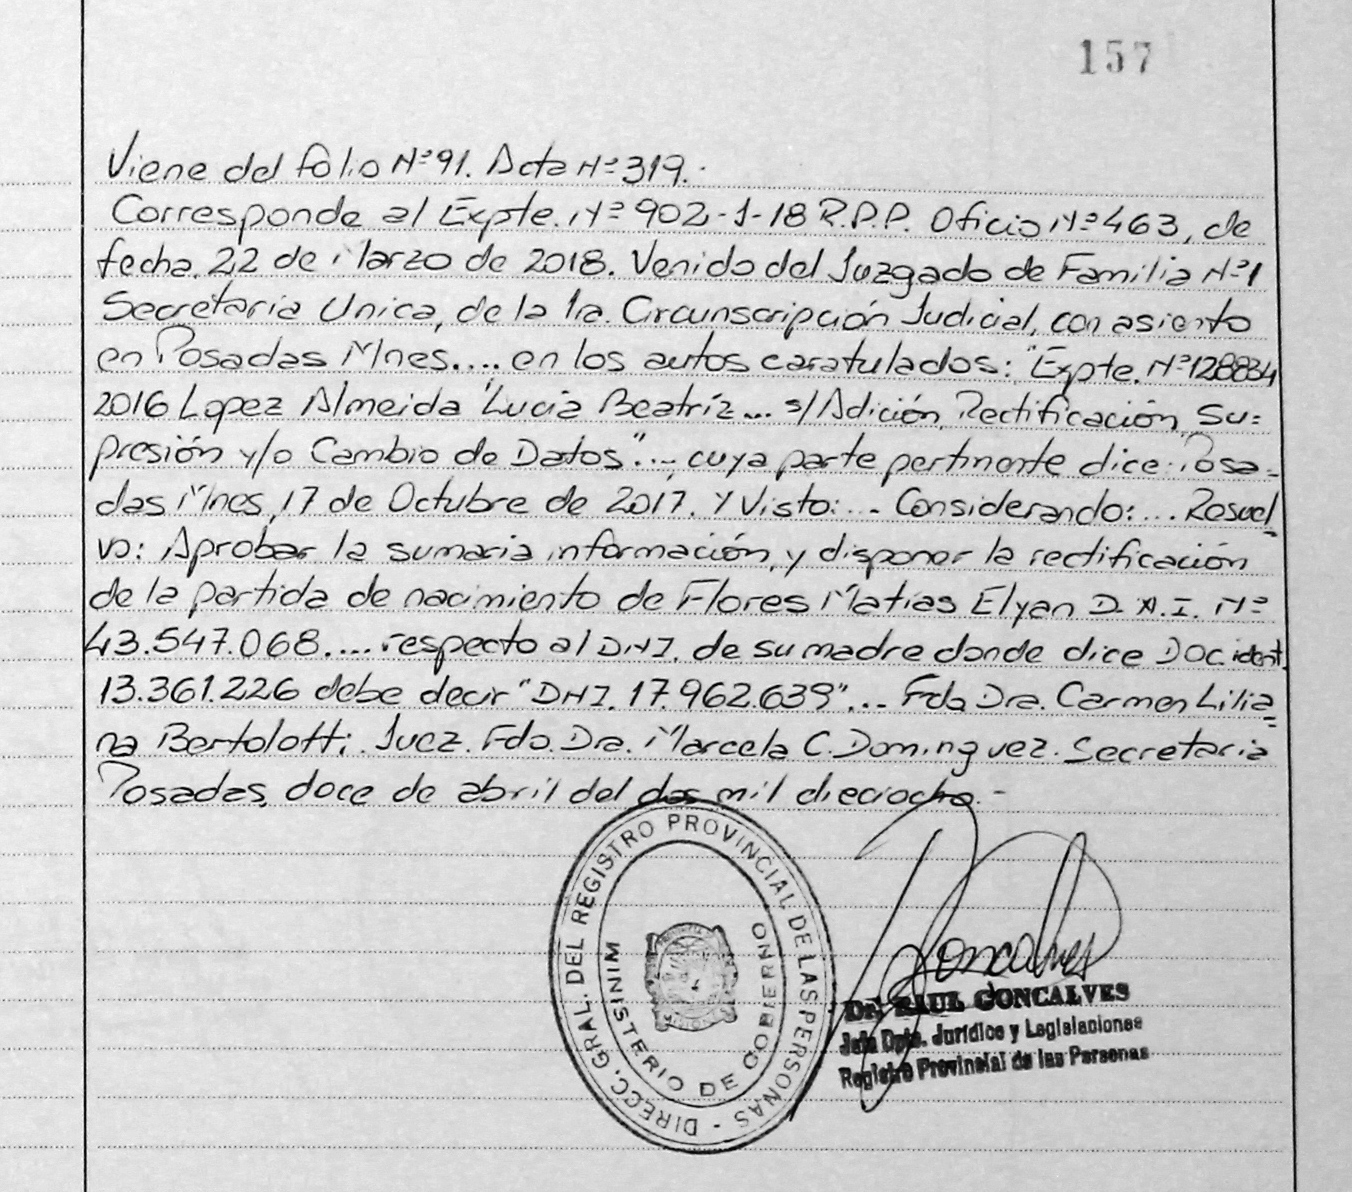 157
Viene del folio Nº 91. Acta Nº 319.-
Corresponde al Expte. Nº 902-J-18 R.P.P. Oficio Nº 463, de
fecha 22 de Marzo de 2018. Venido del Juzgado de Familia Nº 1
Secretaría Unica, de la 1ra. Circunscripción Judicial, con asiento
en Posadas Mnes.... en los autos caratulados: "Expte. Nº 128834
2016 Lopez Almeida Lucia Beatríz... s/ Adición, Rectificación, Su=
presión y/o Cambio de Datos"... cuya parte pertinente dice: Posa=
das Mnes, 17 de Octubre de 2017. Y Visto:... Considerando:... Resuel
vo: Aprobar la sumaria información, y disponer la rectificación
de la partida de nacimiento de Flores Matías Elyan D.N.I. Nº
43.547.068.... respecto al DNI. de su madre donde dice Doc ident.
13.361.226 debe decir "DNI. 17.962.639"... Fda Dra. Carmen Lilia=
na Bertolotti Juez. Fdo. Dra. Marcela C. Dominguez. Secretaria
Posadas, doce de abril del dos mil dieciocho.-
DIRECC. GRAL. DEL REGISTRO PROVINCIAL DE LAS PERSONAS -
MINISTERIO DE GOBIERNO
Goncalves
Dr. RAUL GONCALVES
Jefe Dpto. Jurídico y Legislaciones
Registro Provincial de las Personas